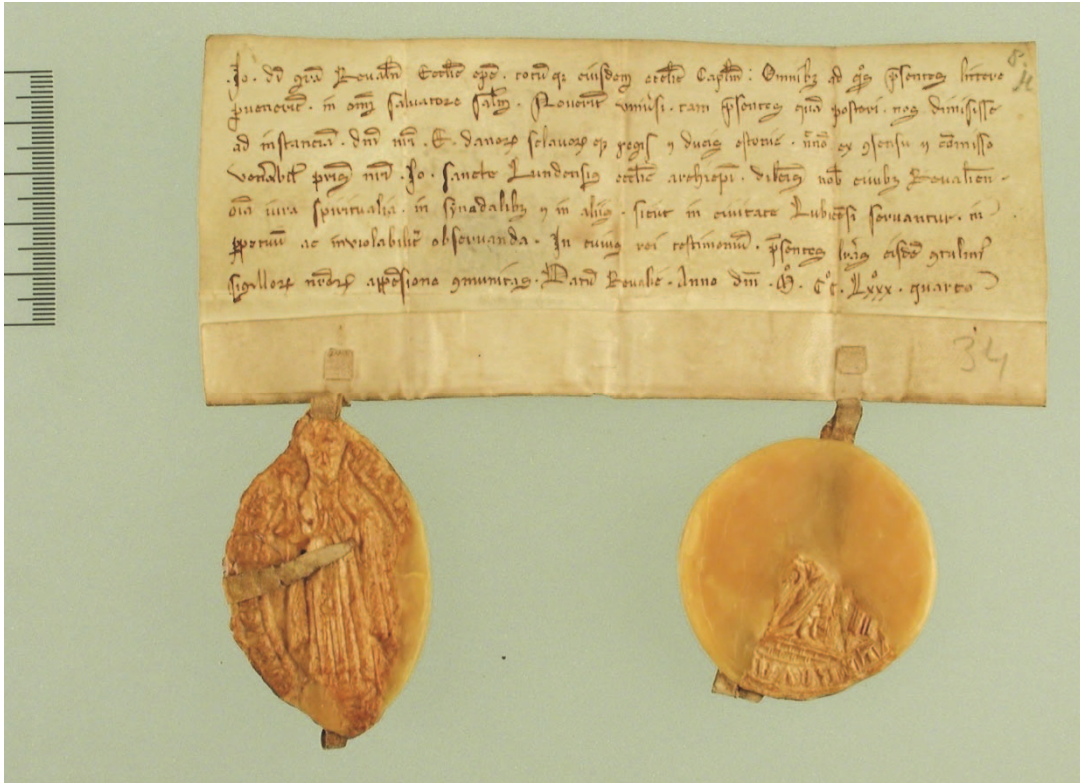 .Jo. dei gra Revaliens Ecclie epc. totuq3 eiusdem ecclie Caplm: Omnib3 ad qos psentes littere 8.
pvenerit. in omi salvatore salm. Noverit univsi. tam psentes qua posteri. nos dimisisse
ad instancia. dni nri .E. danor sclavor q3 regis 7 ducis estonie. nno ex 9sensu 7 comisso
venabil pris nri .Jo. sancte Lundensis ecclie archiepi. dilcis nob civib3 Revalien.
oia iura spiritualia. in synodalib3 7 in aliis. sicut in civitate Lubicensi servantur. in
ppetuu ac inviolabilit observanda. In cuius rei testimoniu. psentes lras eisde 9tulim
sigillor nror appensione 9munitas. Datu Revalie. Anno dni .M. CC. Lxxx. quarto
34